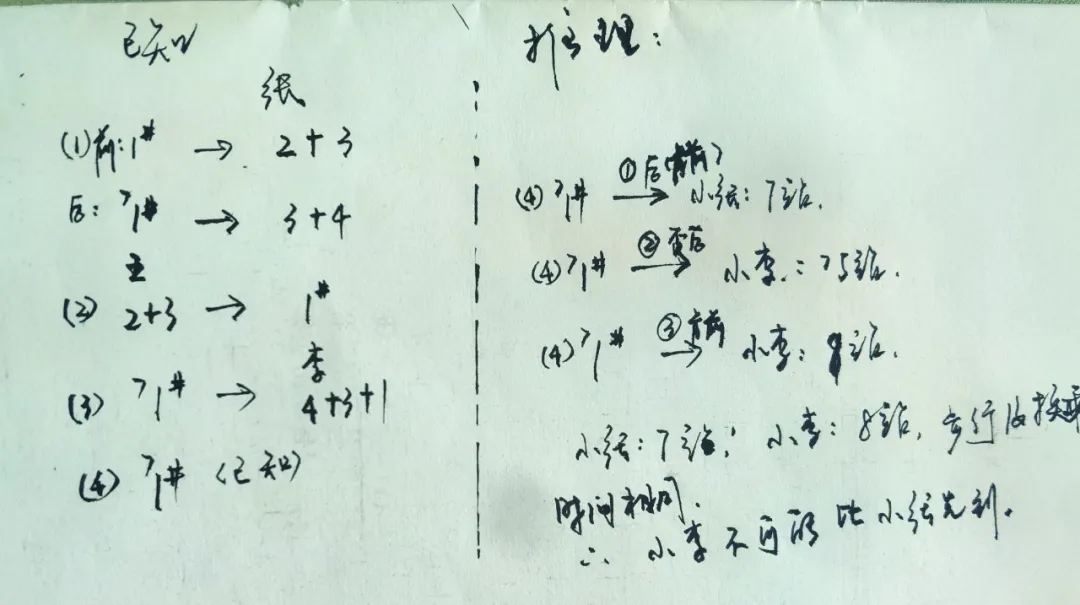 已知
张
(1) 前: 1# → 2+3
后: 71# → 3+4
王
(2) 2+3 → 1#
李
(3) 71# → 4+3+1
(4) 71# (已知)
推理:
(4) 71# ①后 → 小张: 7站.
(4) 71# ② → 小李: 75站.
(4) 71# ③前 → 小李: 站.
小张: 7站; 小李: 8站, 步行及换乘
时间相同.
∴ 小李不可能比小张先到.